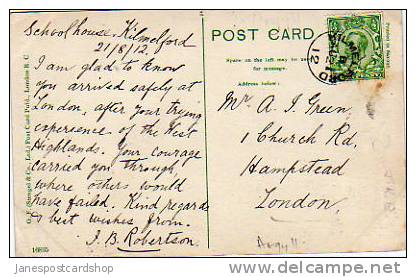 Schoolhouse, Kilmelford
21/8/12.
I am glad to know
you arrived safely at
London, after your trying
experience of the West
Highlands. Your courage
carried you through,
where others would
have failed. Kind regards
& best wishes from.
J. B. Robertson.
G. D. (Stengel & Co., Ld.) Post Card Publ., London E. C.
16895
POST CARD
Space on the left may be used
for message.
Address below:
Printed in Saxony
12
Mr A. J. Green,
1 Church Rd,
Hampstead
London.
Argyll
© janespostcardshop
delcampe.net